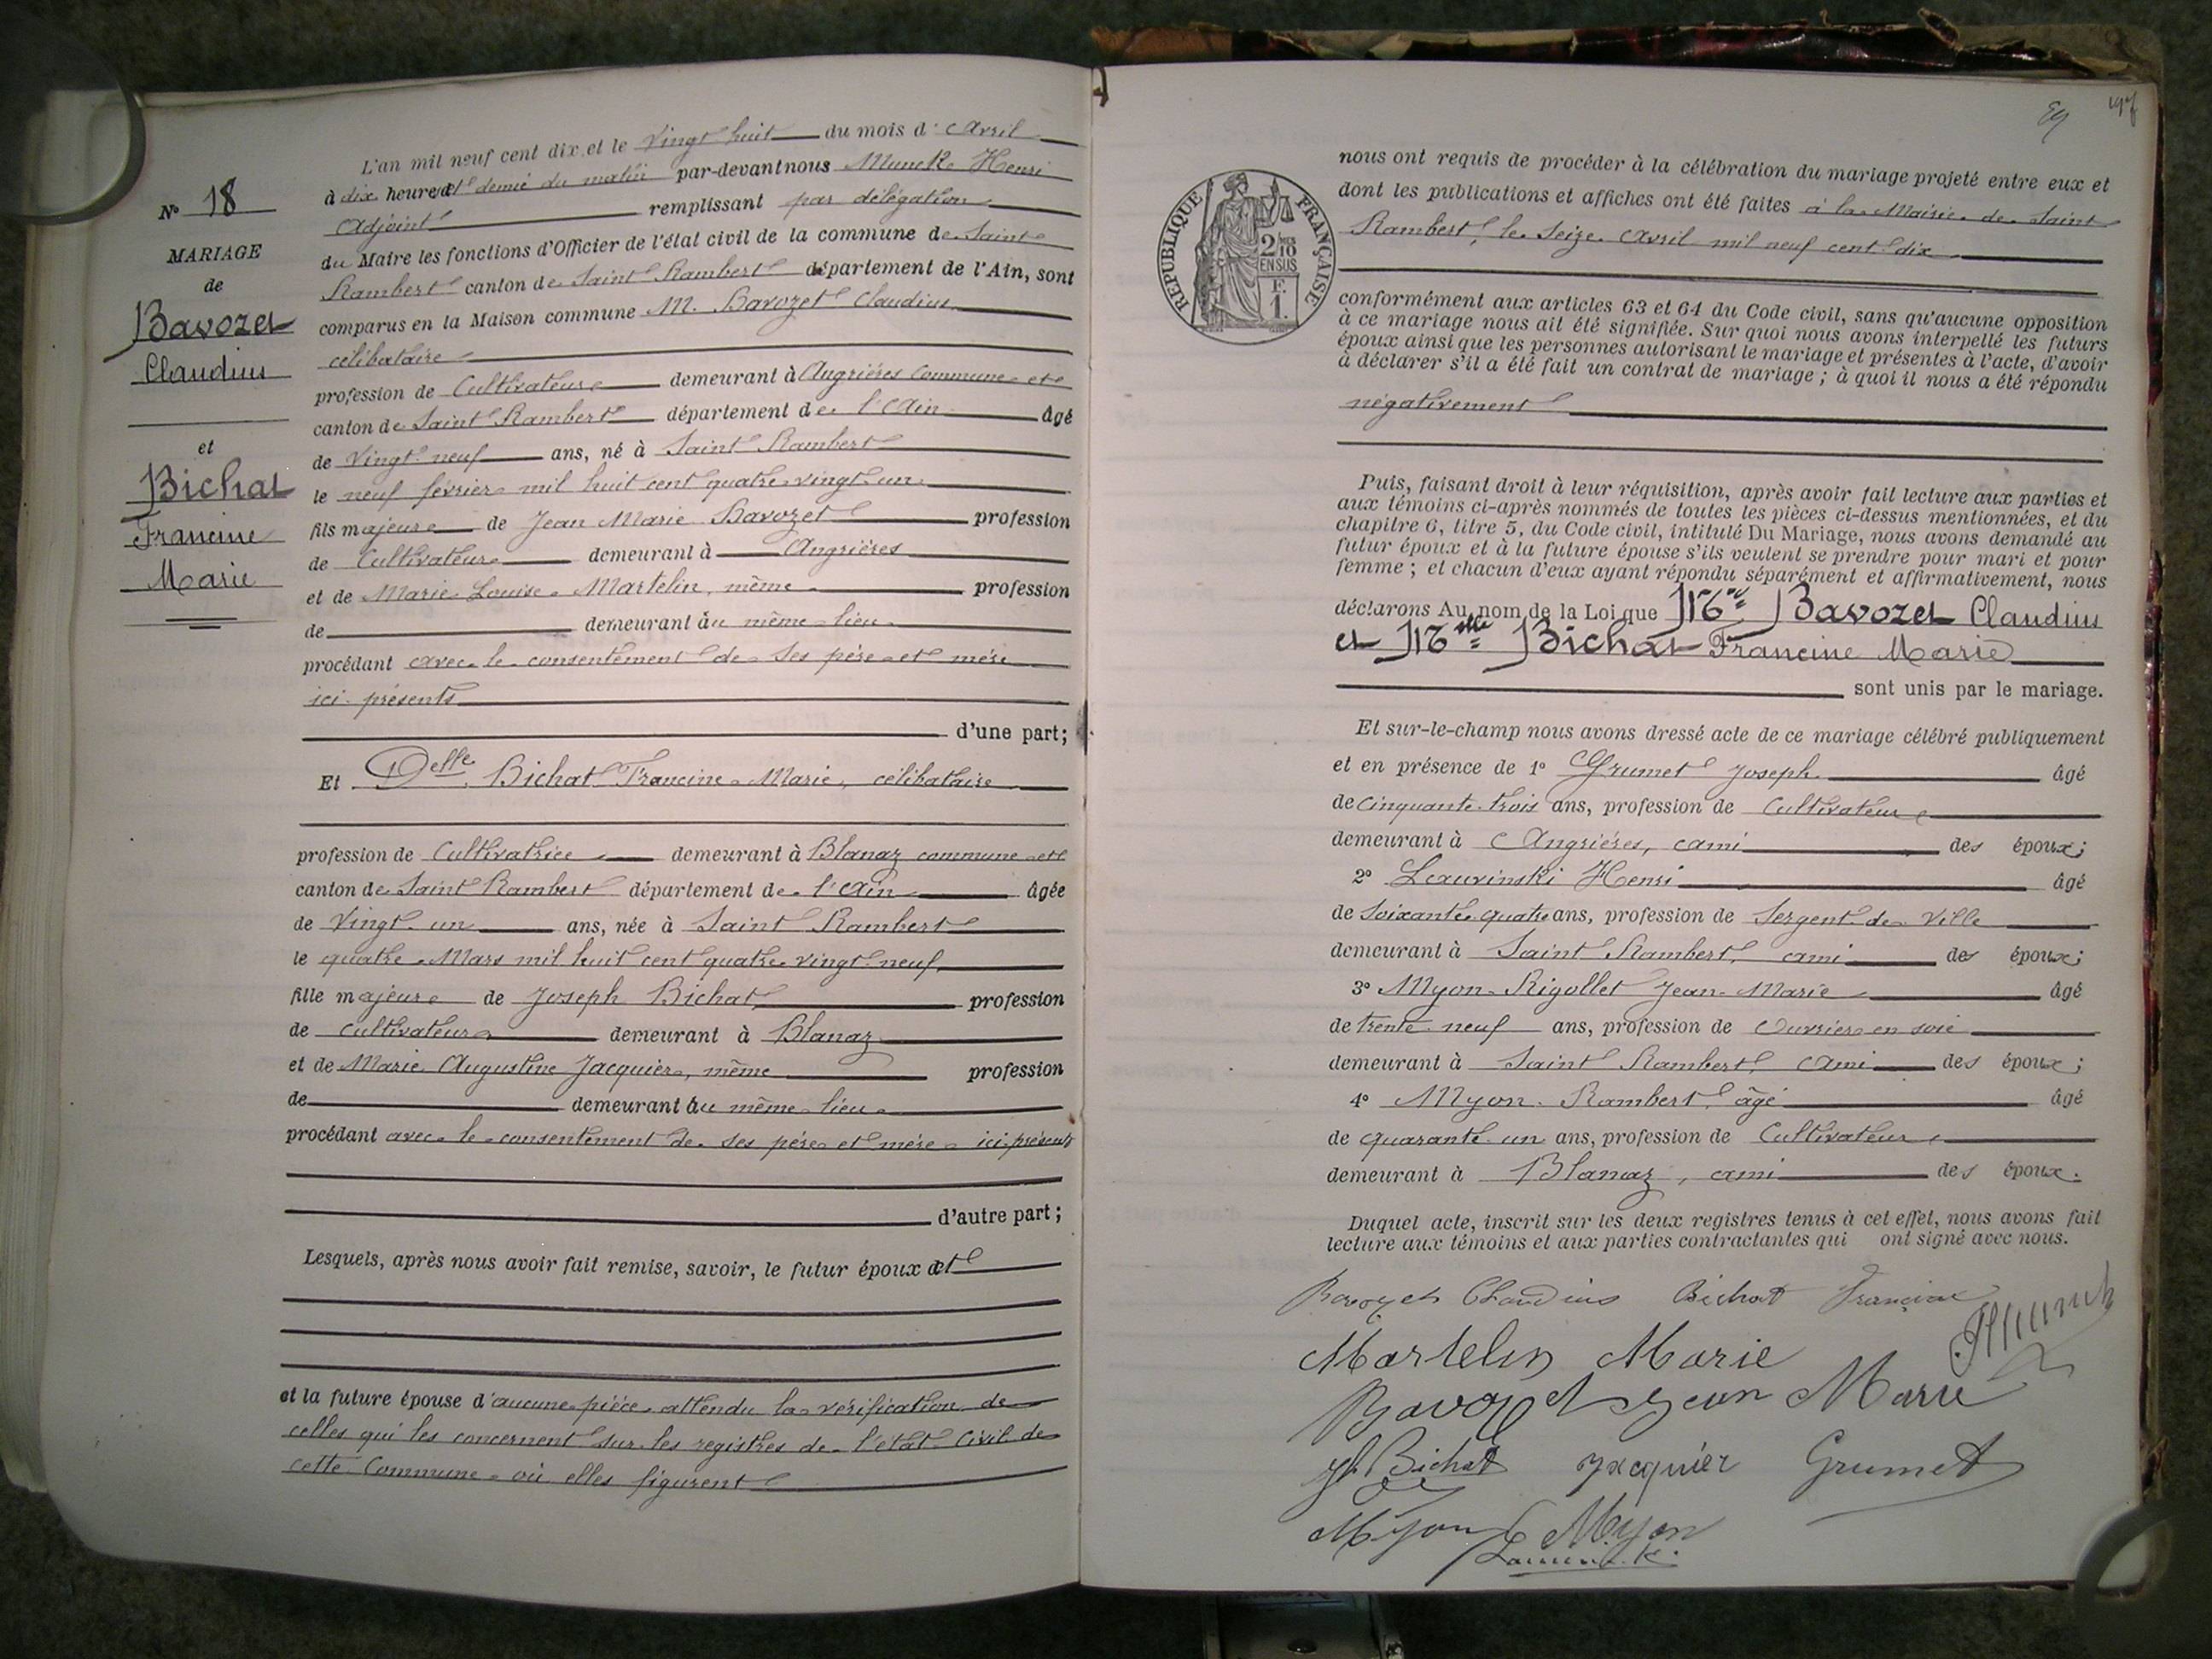 N° 18
MARIAGE
de
Bavozet
Claudius
et
Bichat
Francine
Marie
L'an mil neuf cent dix et le vingt huit du mois d' Avril
à dix heures et demie du matin par-devant nous Munck Henri
Adjoint remplissant par délégation
du Maire les fonctions d'Officier de l'état civil de la commune de Saint
Rambert canton de Saint Rambert département de l'Ain, sont
comparus en la Maison commune M. Bavozet Claudius
célibataire
profession de Cultivateur demeurant à Angrières commune et
canton de Saint Rambert département de l'Ain âgé
de vingt neuf ans, né à Saint Rambert
le neuf février mil huit cent quatre vingt un
fils majeur de Jean Marie Bavozet profession
de Cultivateur demeurant à Angrières
et de Marie Louise Martelin, même profession
de demeurant au même lieu
procédant avec le consentement de ses père et mère
ici présents
d'une part;
Et Delle Bichat Francine Marie, célibataire
profession de Cultivatrice demeurant à Blanaz commune et
canton de Saint Rambert département de l'Ain âgée
de vingt un ans, née à Saint Rambert
le quatre Mars mil huit cent quatre vingt neuf
fille majeure de Joseph Bichat profession
de cultivateur demeurant à Blanaz
et de Marie Augustine Jacquier, même profession
de demeurant au même lieu
procédant avec le consentement de ses père et mère ici présents
d'autre part;
Lesquels, après nous avoir fait remise, savoir, le futur époux et
et la future épouse d'aucune pièce attendu la vérification de
celles qui les concernent sur les registres de l'état civil de
cette Commune où elles figurent
RÉPUBLIQUE FRANÇAISE
2/10
EN SUS
F.
1.
nous ont requis de procéder à la célébration du mariage projeté entre eux et
dont les publications et affiches ont été faites à la Mairie de Saint
Rambert, le Seize Avril mil neuf cent dix
conformément aux articles 63 et 64 du Code civil, sans qu'aucune opposition
à ce mariage nous ait été signifiée. Sur quoi nous avons interpellé les futurs
époux ainsi que les personnes autorisant le mariage et présentes à l'acte, d'avoir
à déclarer s'il a été fait un contrat de mariage ; à quoi il nous a été répondu
négativement
Puis, faisant droit à leur réquisition, après avoir fait lecture aux parties et
aux témoins ci-après nommés de toutes les pièces ci-dessus mentionnées, et du
chapitre 6, titre 5, du Code civil, intitulé Du Mariage, nous avons demandé au
futur époux et à la future épouse s'ils veulent se prendre pour mari et pour
femme ; et chacun d'eux ayant répondu séparément et affirmativement, nous
déclarons Au nom de la Loi que Mr Bavozet Claudius
et Melle Bichat Francine Marie
sont unis par le mariage.
Et sur-le-champ nous avons dressé acte de ce mariage célébré publiquement
et en présence de 1° Grumet Joseph âgé
de cinquante trois ans, profession de Cultivateur
demeurant à Angrières, ami des époux;
2° Lauvinski Henri âgé
de soixante quatre ans, profession de Sergent de Ville
demeurant à Saint Rambert, ami des époux;
3° Myon-Rigollet Jean-Marie âgé
de trente neuf ans, profession de Ouvrier en soie
demeurant à Saint Rambert, ami des époux;
4° Myon Rambert, âgé âgé
de quarante un ans, profession de Cultivateur
demeurant à Blanaz, ami des époux.
Duquel acte, inscrit sur les deux registres tenus à cet effet, nous avons fait
lecture aux témoins et aux parties contractantes qui ont signé avec nous.
Bavozet Claudius Bichat Francine
Martelin Marie
Bavozet Jean Marie
Bichat Jacquier Grumet
Myon Myon